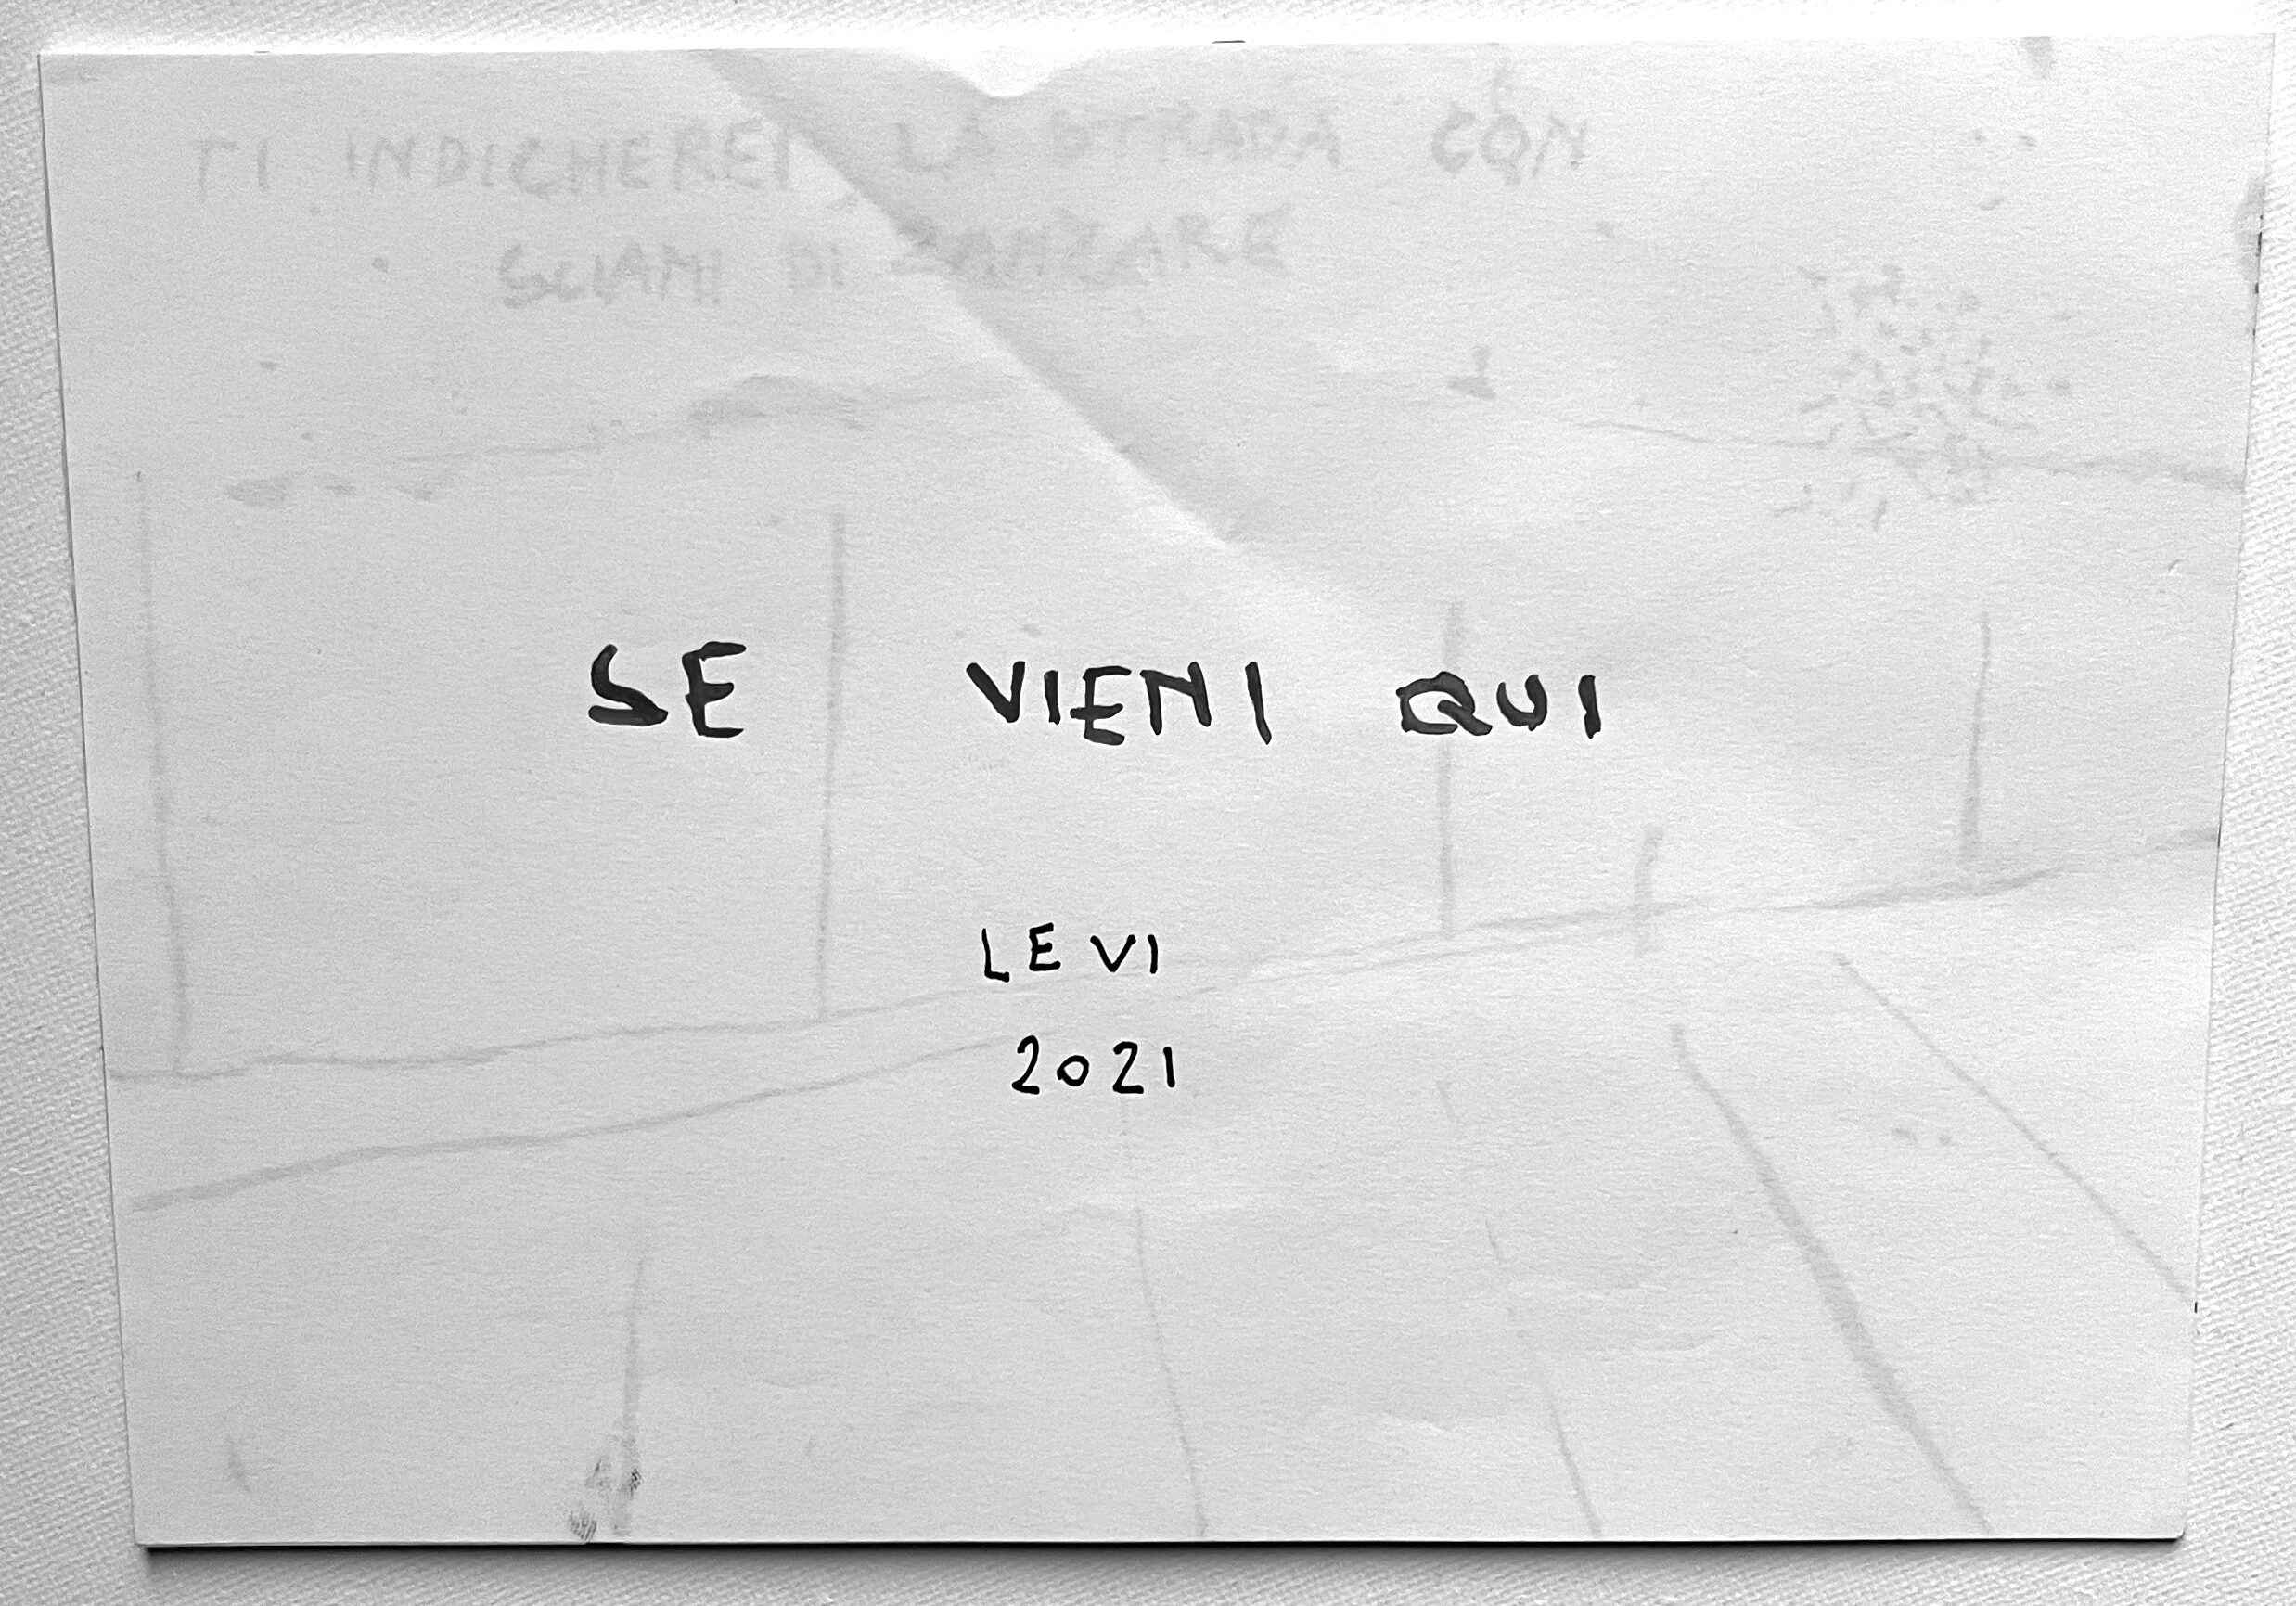 TI INDICHEREI LA STRADA CON
SCIAMI DI ZANZARE
SE VIENI QUI
LEVI
2021